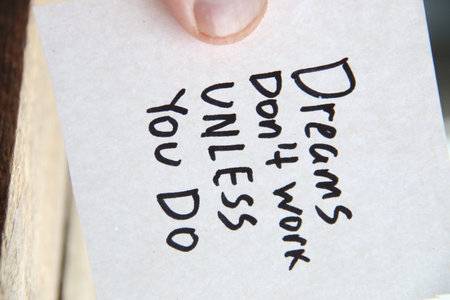 Dreams
Don't work
UNLESS
You Do